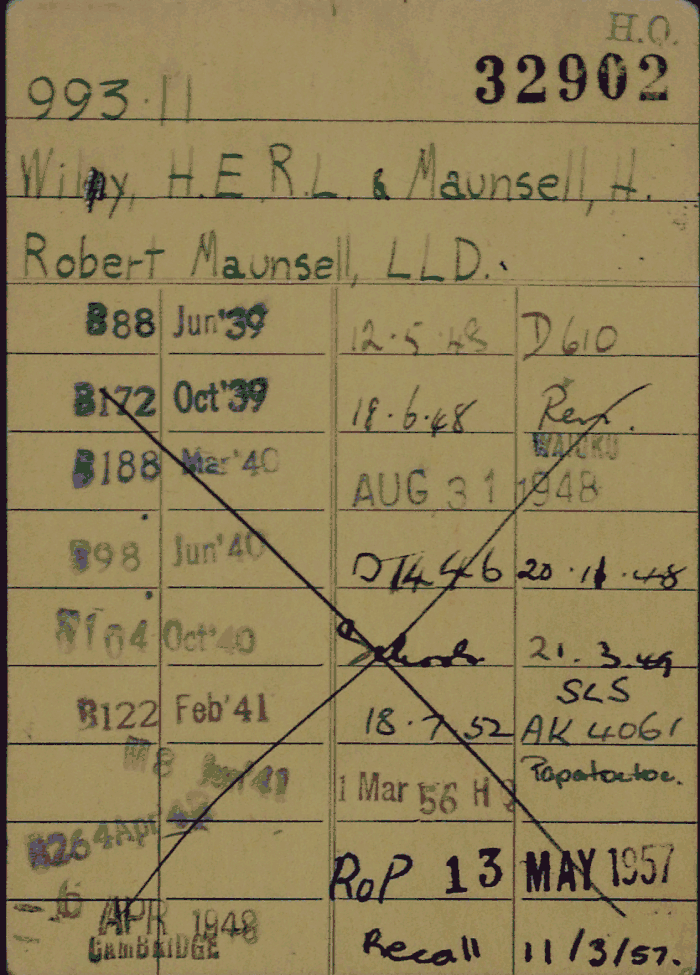 H.O.
993.11 32902
Wilny, H.E.R.L. & Maunsell, H.
Robert Maunsell, LLD.
B88 Jun'39 12.5.48 D610
B172 Oct'39 18.6.48 Ren.
WAIUKU
B188 Mar'40 AUG 31 1948
B98 Jun'40 D1446 20.11.48
B164 Oct'40 Schools 21.3.49
SLS
B122 Feb'41 18.7.52 AK 4061
M8 Jun'41 Papatoetoe.
1 Mar 56 H
B264 Apr'42
RoP 13 MAY 1957
6 APR 1948
CAMBRIDGE
Recall 11/3/57.